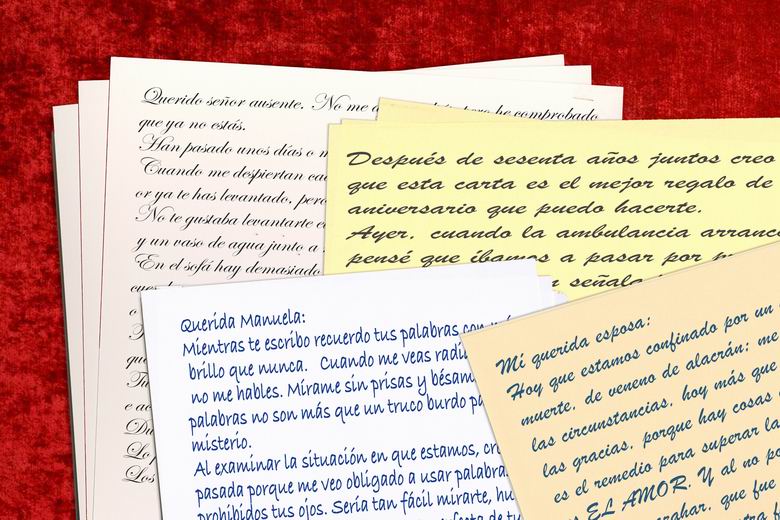 Querido señor ausente. No me he comprobado
que ya no estás.
Han pasado unos días o
Cuando me despiertan
or ya te has levantado,
No te gustaba levantarte
y un vaso de agua junto a
En el sofá hay demasiado
Después de sesenta años juntos creo
que esta carta es el mejor regalo de
aniversario que puedo hacerte.
Ayer, cuando la ambulancia
pensé que íbamos a pasar por
Querida Manuela:
Mientras te escribo recuerdo tus palabras
brillo que nunca. Cuando me veas
no me hables. Mírame sin prisas y
palabras no son más que un truco burdo
misterio.
Al examinar la situación en que estamos,
pasada porque me veo obligado a usar
prohibidos tus ojos. Sería tan fácil mirarte,
Mi querida esposa:
Hoy que estamos confinado por un
muerte, de veneno de alacrán; me
las circunstancias, hoy más que
las gracias, porque hay cosas
es el remedio para superar la
EL AMOR. Y al no
que fue